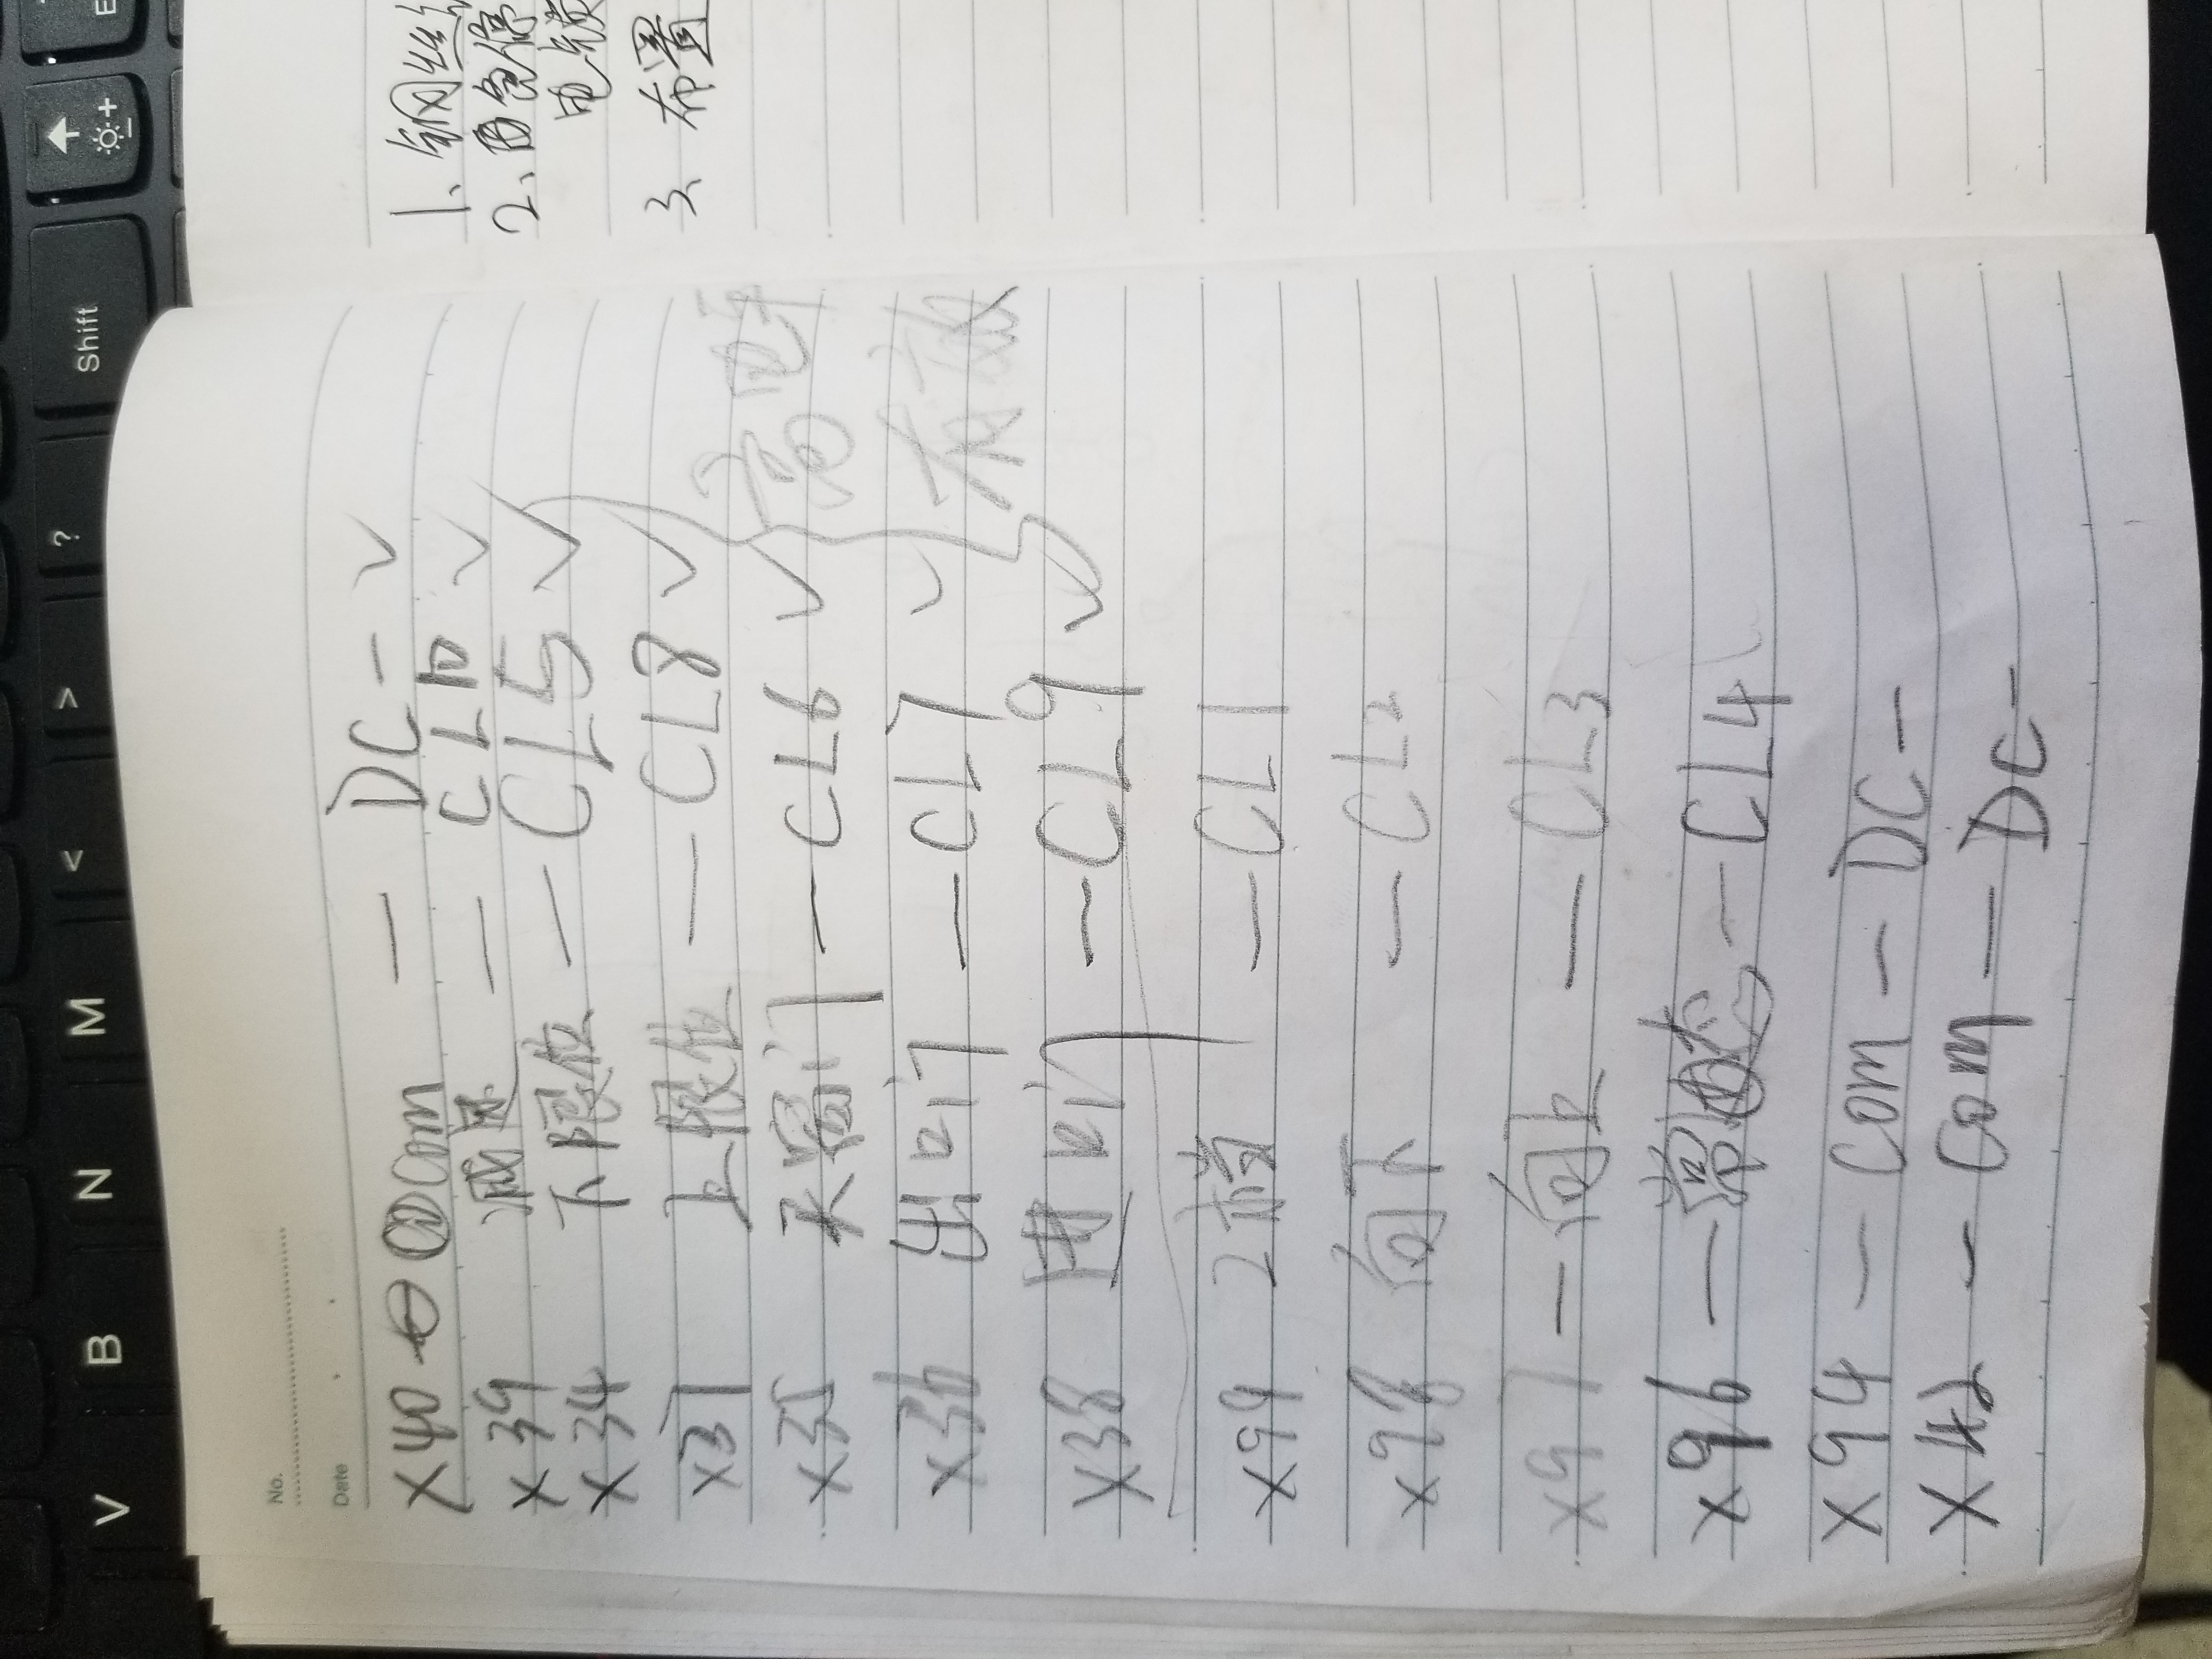 V B N M < > ? Shift
No.
Date
X40 Com — DC- ✓
X39 减速 — CL10 ✓
X34 下限位 — CL5 ✓
X37 上限位 — CL8 ✓
X35 天窗门 — CL6 ✓
X36 出口门 — CL7 ✓
X38 进口门 — CL9 ✓
高电平
有效
X99 2档 — CL1
X98 向下 — CL2
X97 — 向上 — CL3
X96 — 常态 — CL4
X94 — Com — DC-
X42 — Com — DC-
1、钢丝
2、急停
电锁
3、布置